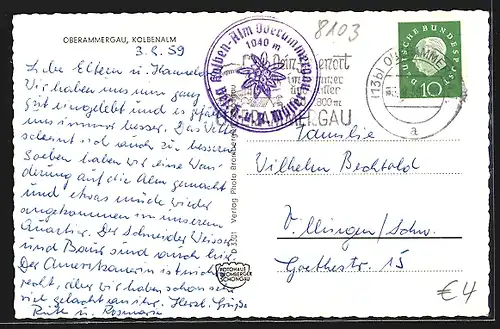 OBERAMMERGAU, KOLBENALM
3.8.59
Liebe Eltern u. Hannelore
Wir haben uns nun ganz
gut eingelebt und es gefällt
uns immer besser. Das Wetter
scheint sich auch zu bessern.
Soeben haben wir eine Wan-
derung auf die Alm gemacht
und etwas müde wieder
angekommen in unserem
Quartier. Der Schneider Weisser
und Baus sind auch hier.
Der Amerikanerin ist nicht
recht, aber wir haben schon sehr
viel gelacht an ihr. Herzl. Grüße
Rita u. Rosmarie
Kolben-Alm Oberammergau
1040 m
8103
DEUTSCHE BUNDESPOST
10
(13b) OBERAMMERGAU
a
Familie
Wilhelm Bechtold
Villingen/Schw.
Goethestr. 15
D 3301 Verlag Photo Bromberger
FOTOHAUS
BROMBERGER
SCHONGAU
€4